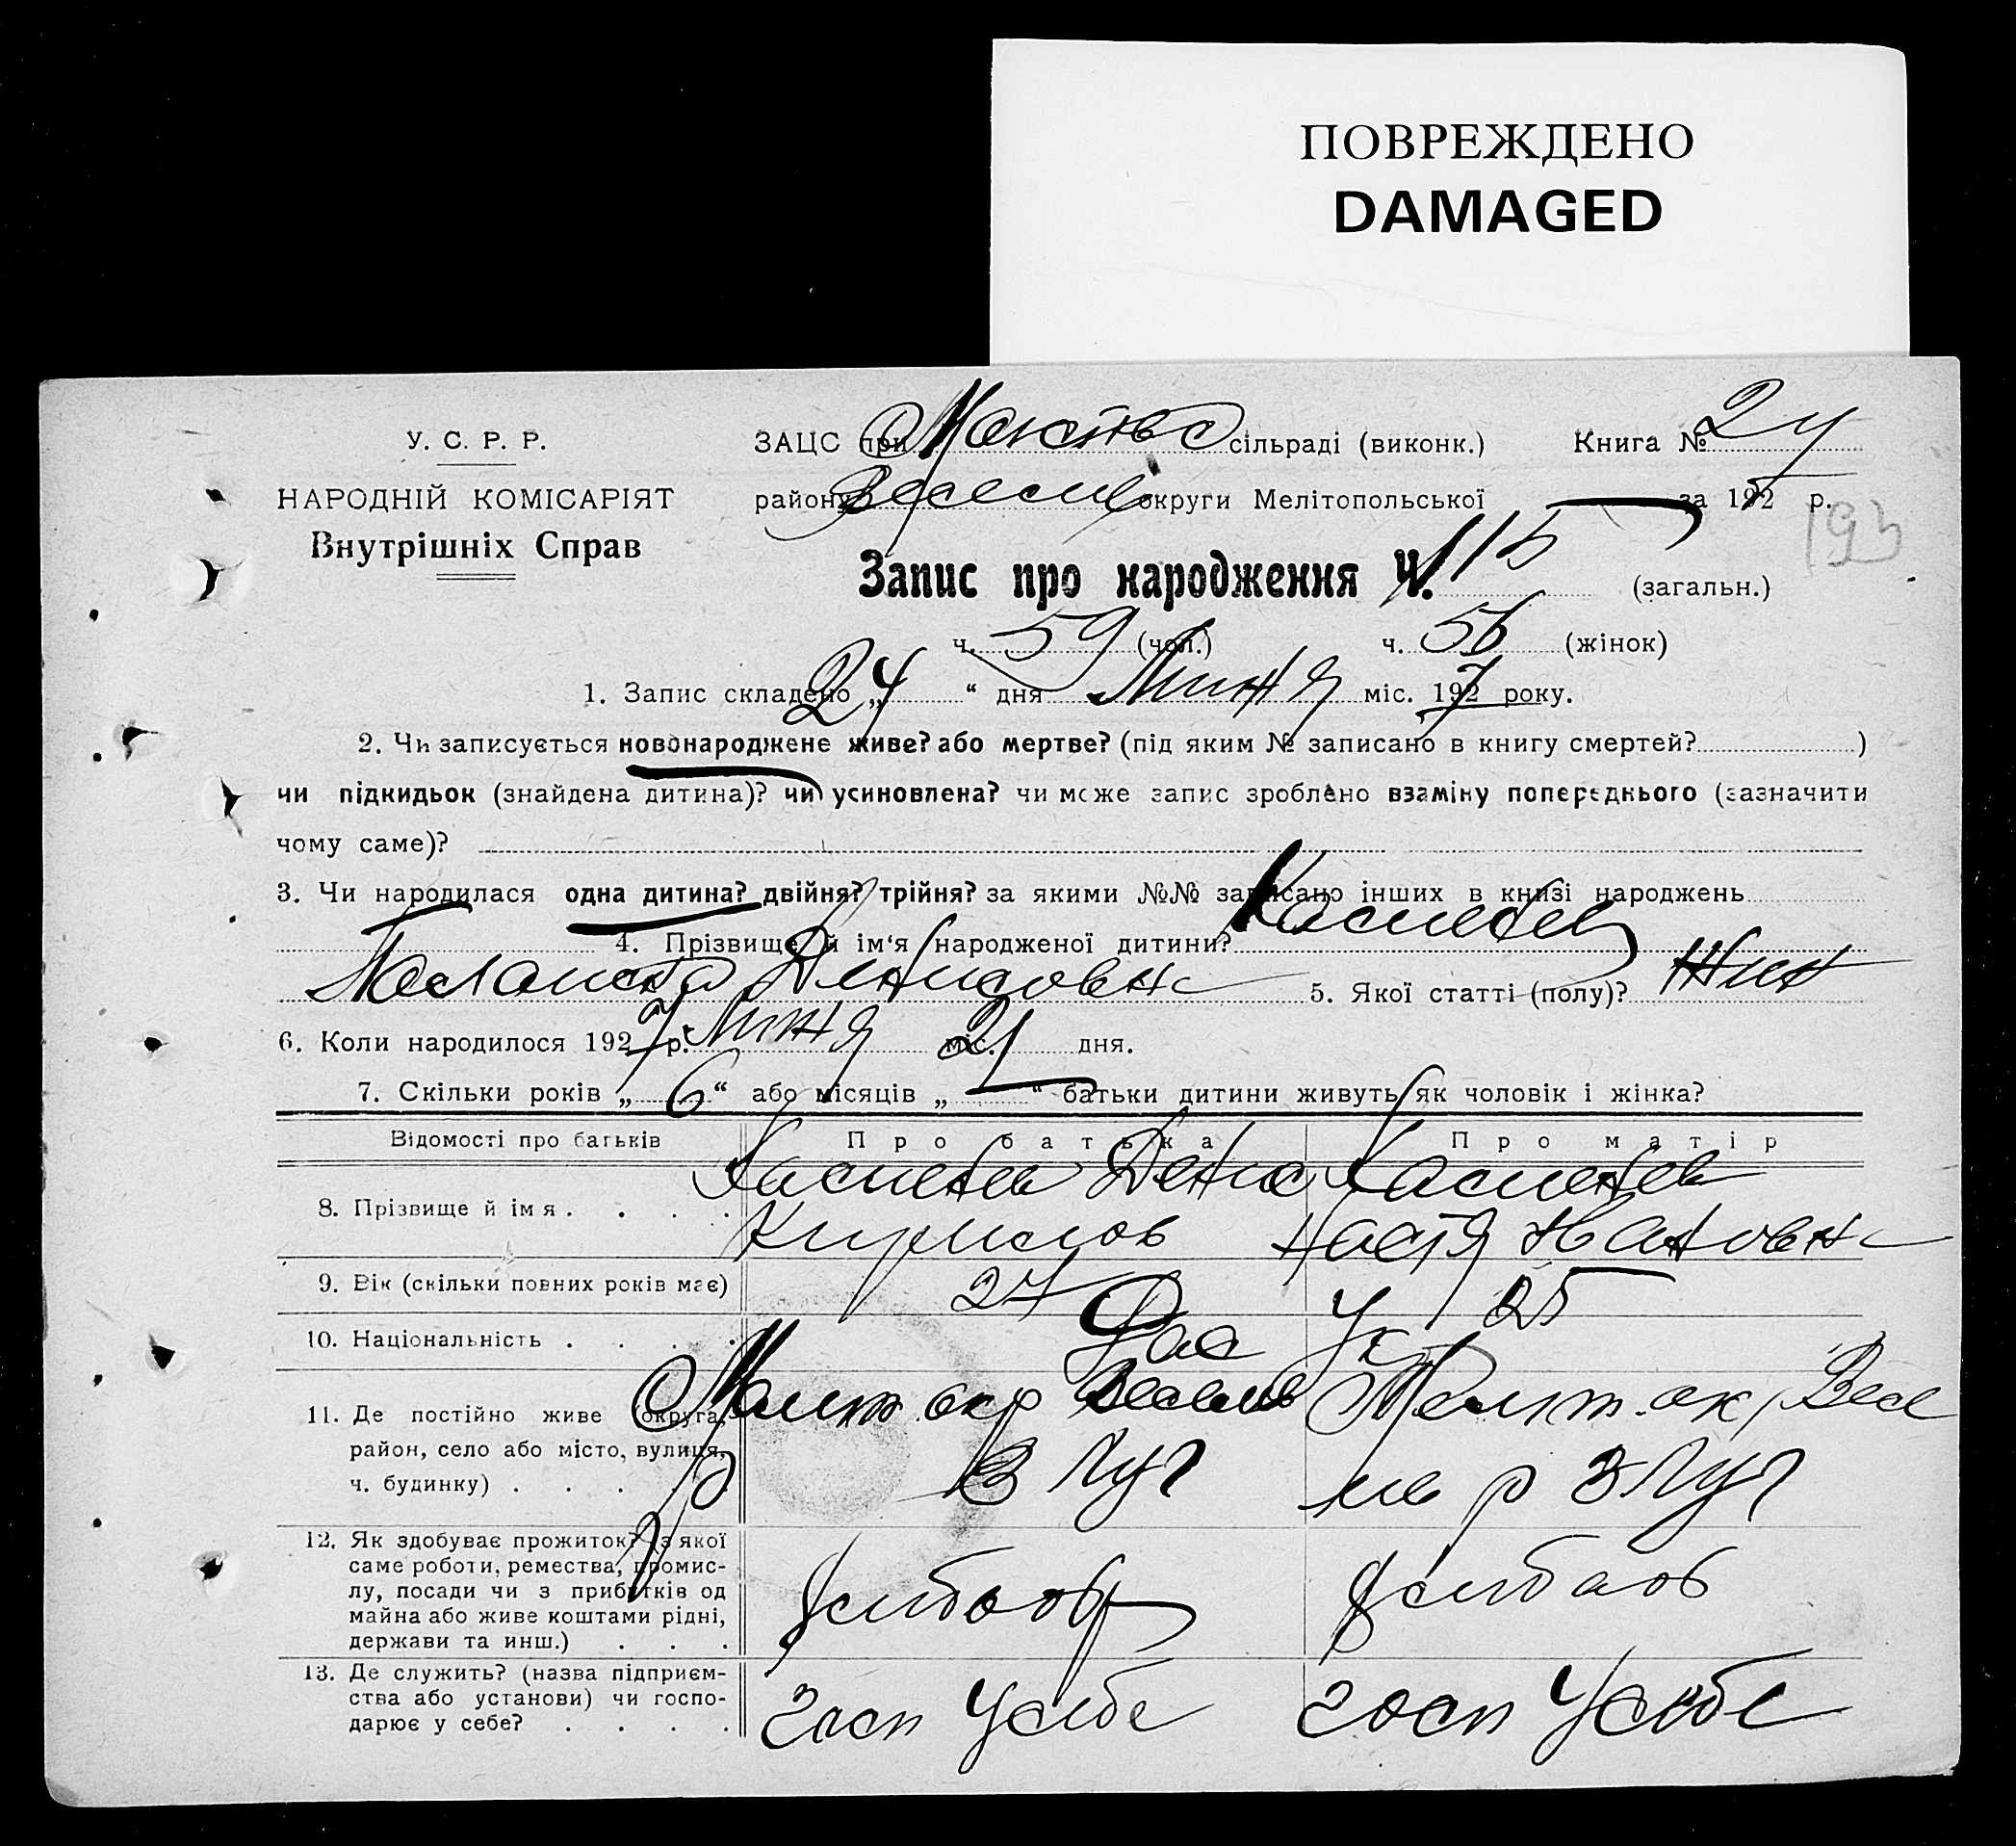 ПОВРЕЖДЕНО
DAMAGED
У. С. Р. Р.
НАРОДНІЙ КОМІСАРІЯТ
Внутрішніх Справ
ЗАЦС при сільраді (виконк.)
Книга № 2
району округи Мелітопольської за 1927 р.
193
Запис про народження Ч. 115 (загальн.)
ч. 59 (чол.) ч. 56 (жінок)
1. Запис складено „24“ дня міс. 1927 року.
2. Чи записується новонароджене живе? або мертве? (під яким № записано в книгу смертей? )
чи підкидьок (знайдена дитина)? чи усиновлена? чи може запис зроблено взаміну попереднього (зазначити
чому саме)?
3. Чи народилася одна дитина? двійня? трійня? за якими №№ записано інших в книзі народжень
4. Прізвище й ім‘я народженої дитини?
Денисовн 5. Якої статті (полу)? Жин
6. Коли народилося 1927 р. міс. 21 дня.
7. Скільки років „6“ або місяців „—“ батьки дитини живуть як чоловік і жінка?
Відомості про батьків Про батька Про матір
8. Прізвище й імя . . . . Денис
Кирилов Настя Ивановн
9. Вік (скільки повних років має) 27 25
10. Національність . . . . Рос Ук
11. Де постійно живе (округа, Мелит окр Мелит. ок, Весе
район, село або місто, вулиця, В Луг лів р В Луг
ч. будинку) . . . .
12. Як здобуває прожиток? (з якої
саме роботи, ремества, промис-
лу, посади чи з прибутків од
майна або живе коштами рідні,
держави та инш.) . . . Хлибороб Хлибороб
13. Де служить? (назва підприєм-
ства або установи) чи госпо-
дарює у себе? . . . . госп У себе госп У себе